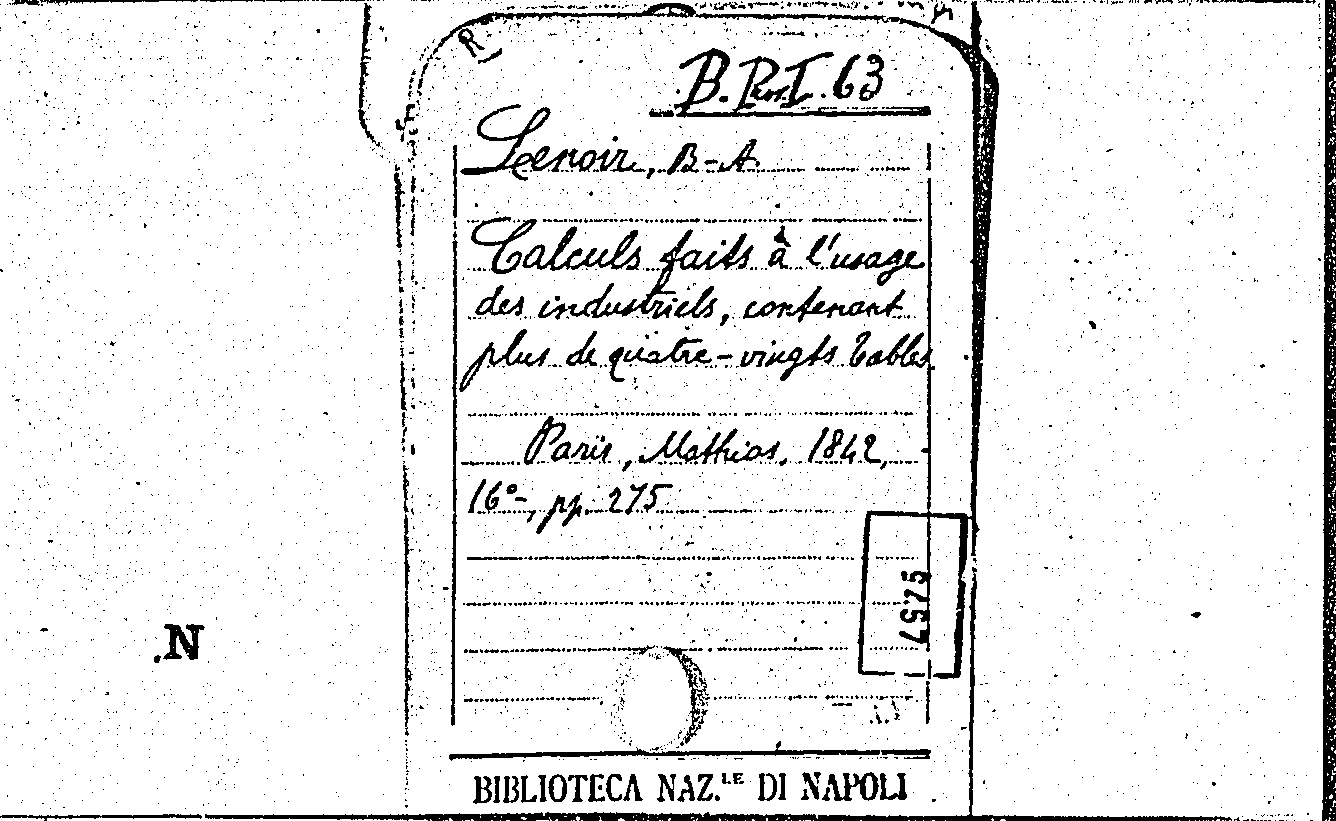 R
B. Prov. I. 63
Lenoir, B-A.
Calculs faits à l'usage
des industriels, contenant
plus de quatre-vingts tables.
Paris, Mathias, 1842,
16°-, pp. 275
7575
N
BIBLIOTECA NAZ.LE DI NAPOLI